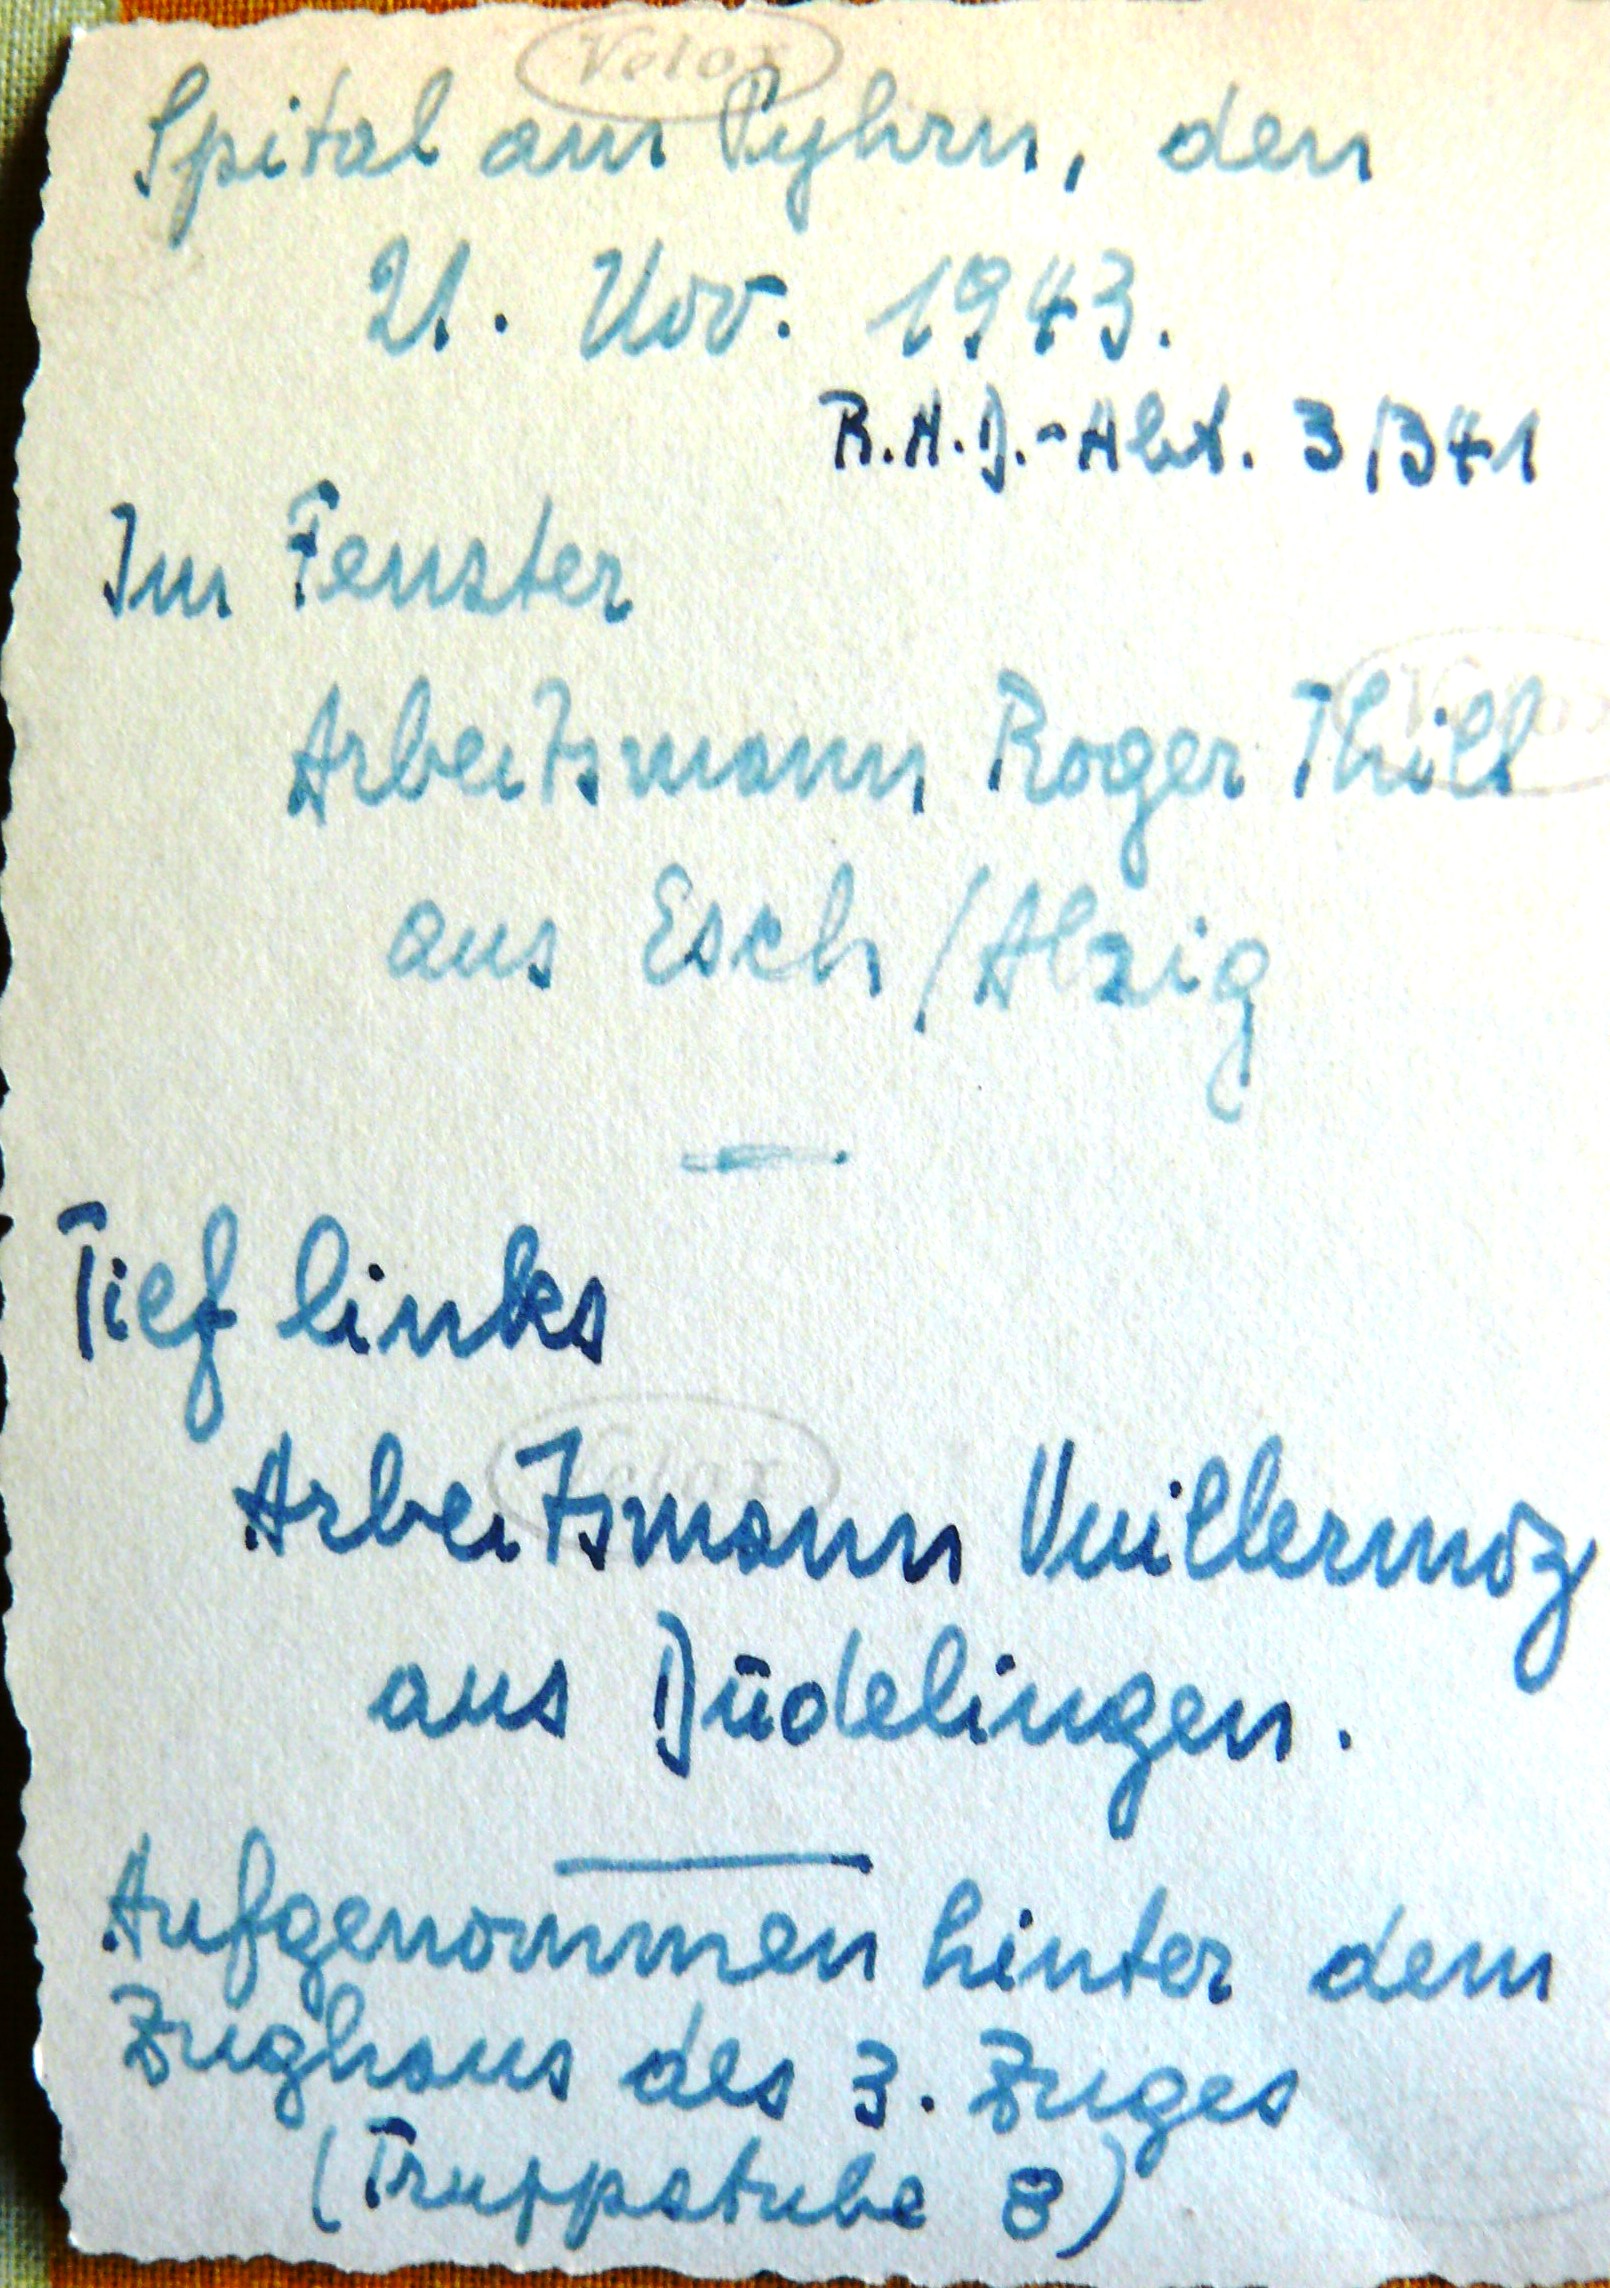 Velox
Spital am Pyhrn, den
21. Nov. 1943.
R.A.D.-Abt. 3/341
Im Fenster
Arbeitsmann Roger Thill
Velox
aus Esch/Alzig
Tief links
Velox
Arbeitsmann Vuillermoz
aus Düdelingen.
Aufgenommen hinter dem
Zughaus des 3. Zuges
(Truppstube 8)